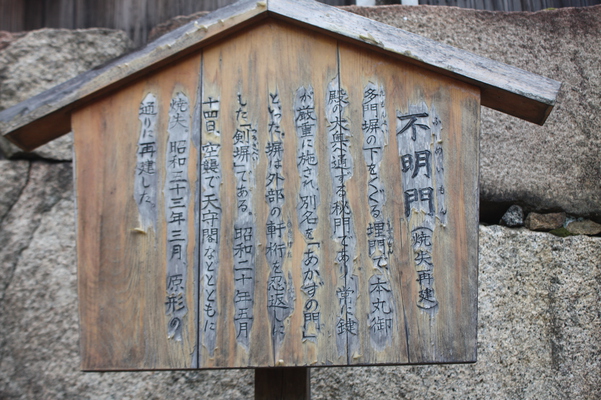 不明門（焼失再建）
多門塀の下をくぐる埋門で 本丸御
殿の大奥へ通ずる秘門であり、常に鍵
が厳重に施され別名を「あかずの門」
といった。塀は外部の軒桁を忍返しに
した剣塀である。昭和二十年五月
十四日、空襲で天守閣などとともに
焼失 昭和五十三年三月 原形の
通りに再建した